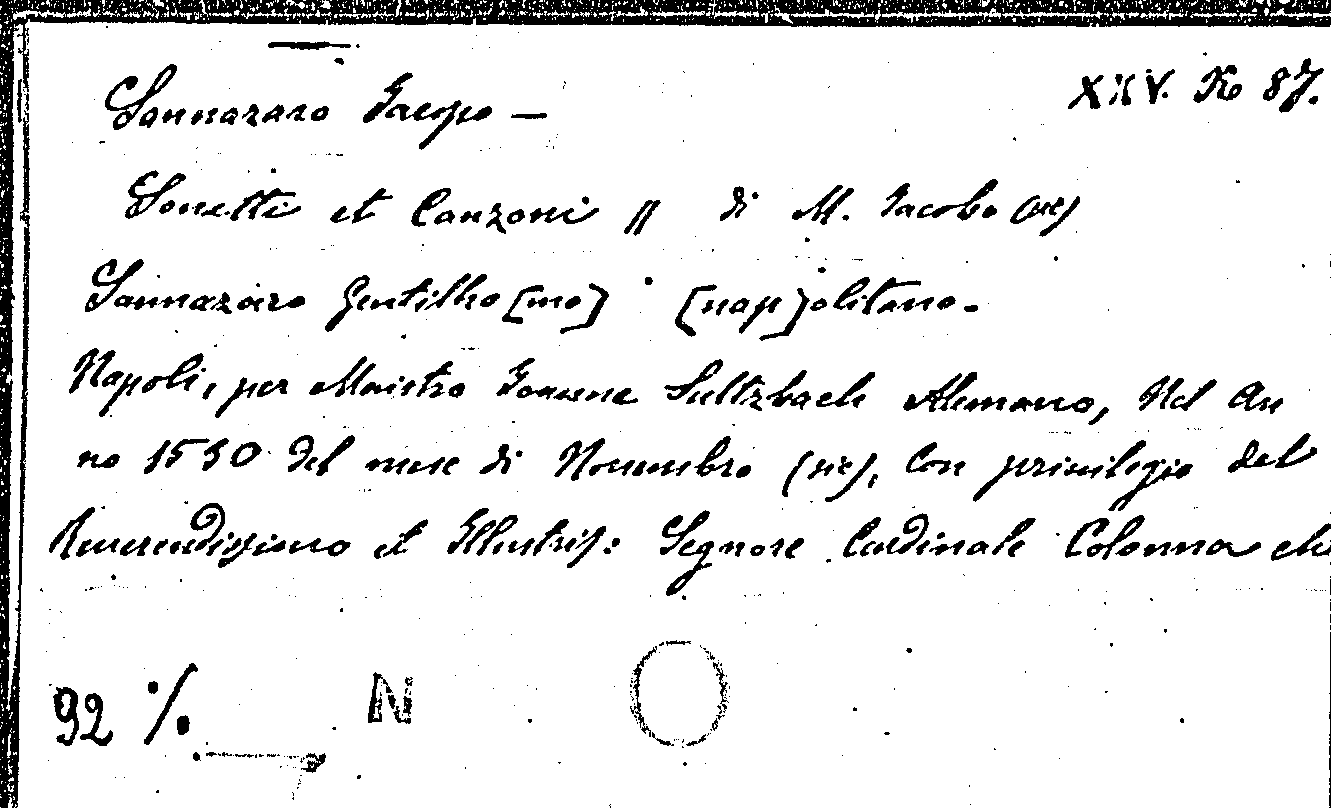 XXV. K 87.
Sannazaro Jacopo —
Sonetti et Canzoni // di M. Jacobo (sic)
Sannazaro Gentilho[mo] [nap]olitano.
Napoli, per Maistro Joanne Sultzbach Alemano, Nel An
no 1530 del mese di Novembro (sic), Con privilegio del
Reverendissimo et Illustriss: Segnore Cardinale Colonna che
92 %. N